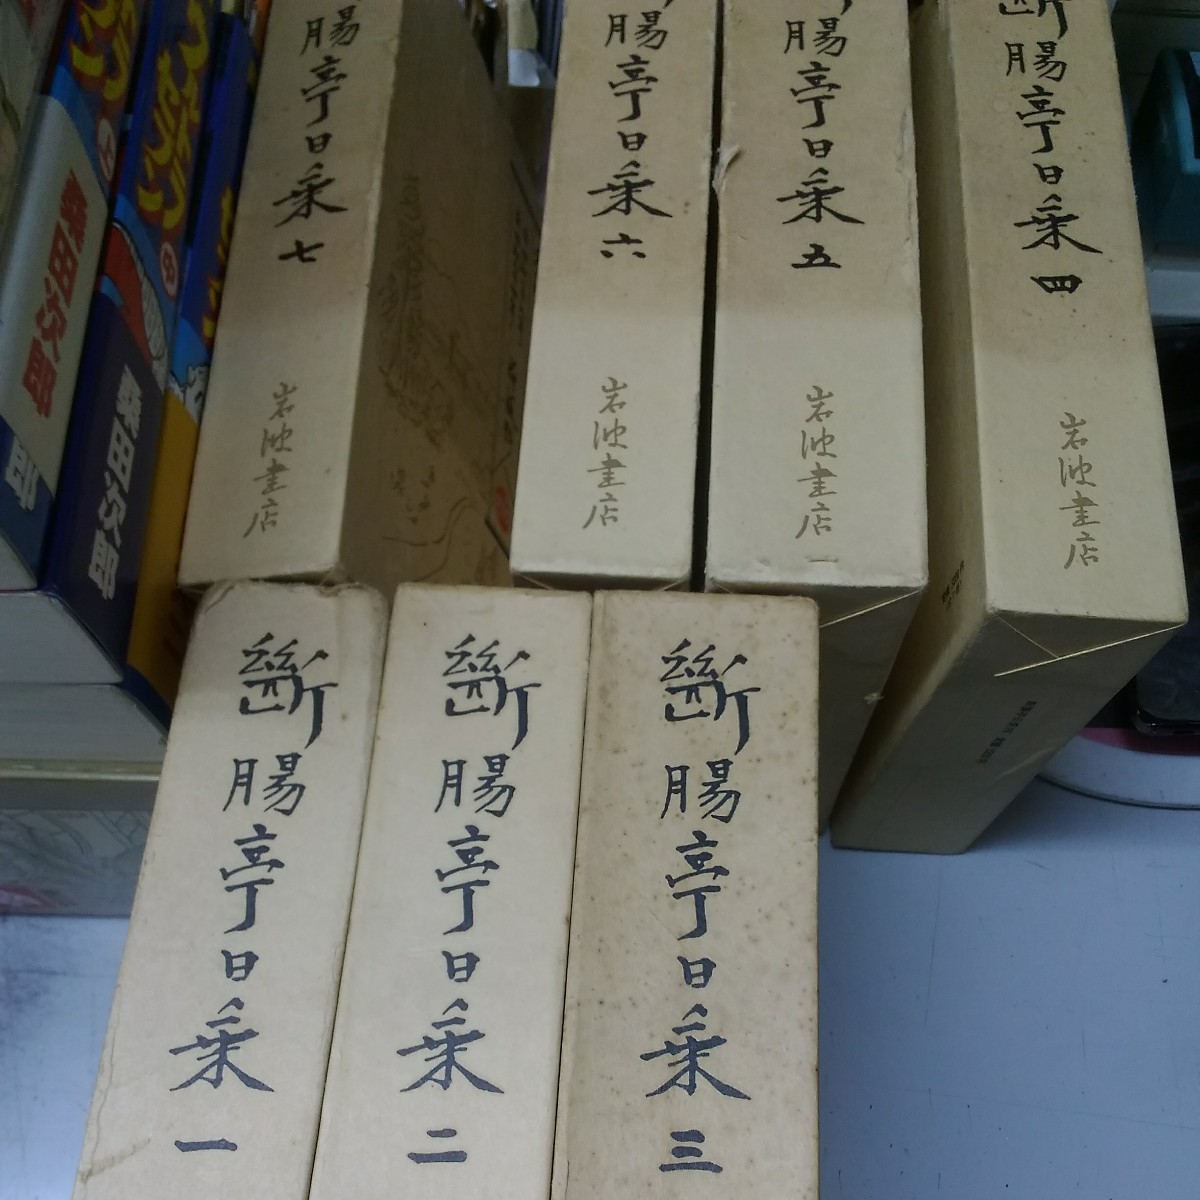 斷腸亭日乗 一
斷腸亭日乗 二
斷腸亭日乗 三
斷腸亭日乗 四
岩波書店
腸亭日乗 五
岩波書店
腸亭日乗 六
岩波書店
腸亭日乗 七
岩波書店
桑田次郎
上
桑田次郎
中
郎